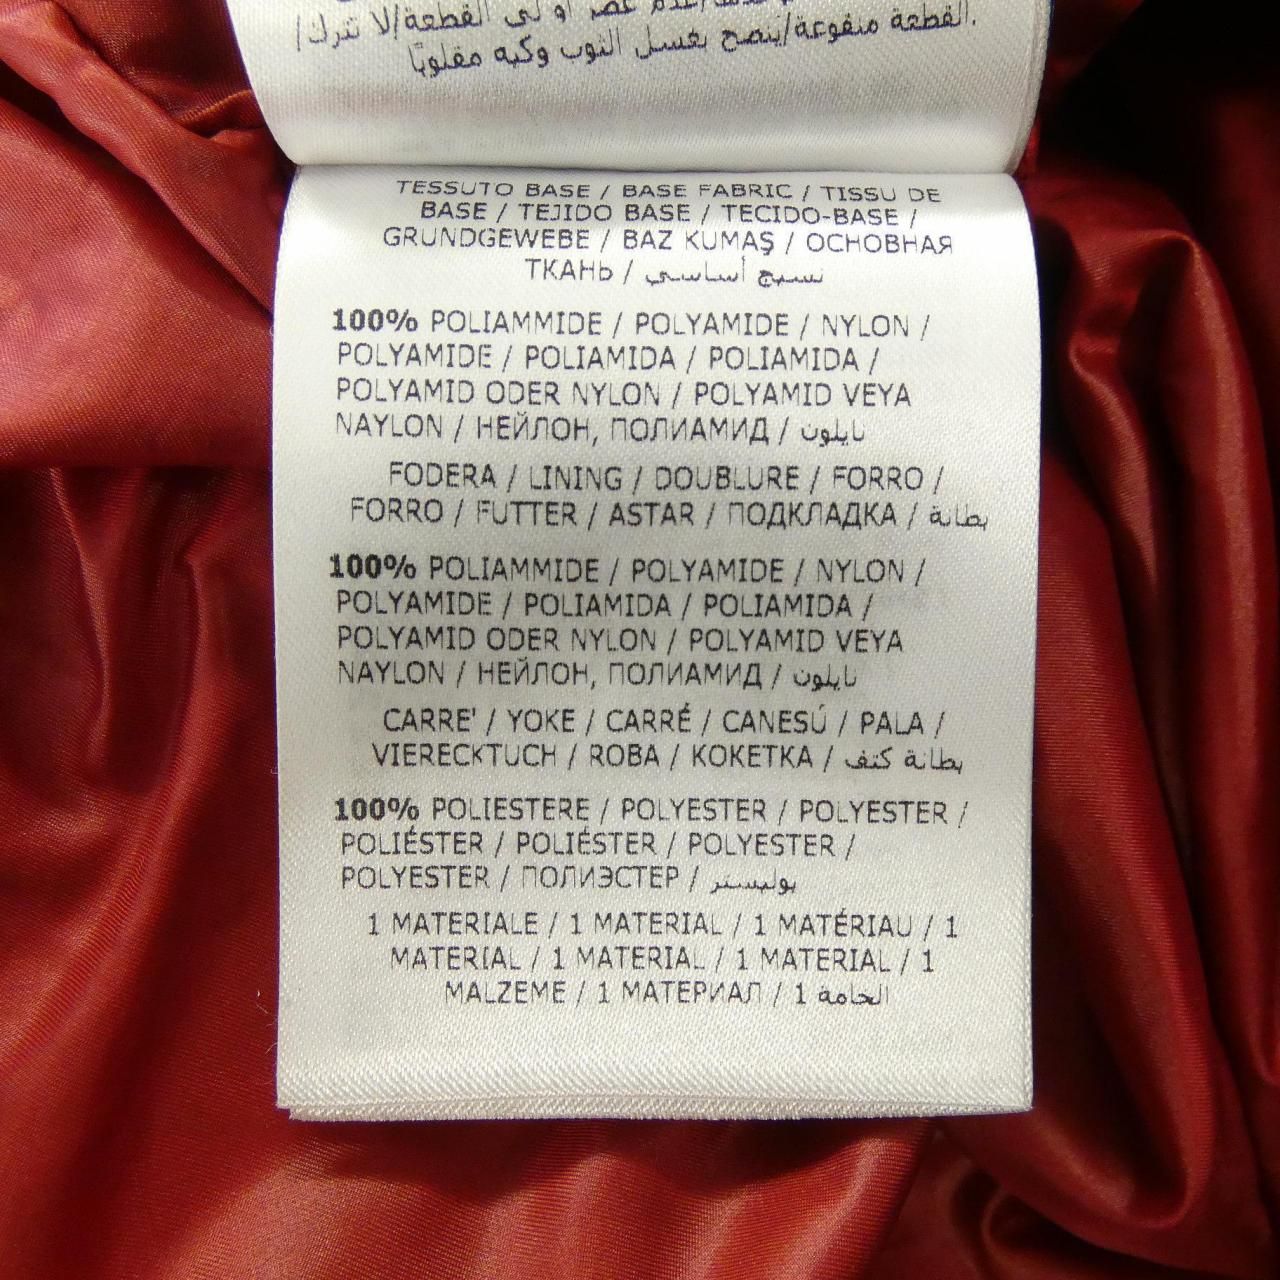 القطعة منقوعة/يُنصح بغسل الثوب وكيه مقلوبًا.
TESSUTO BASE / BASE FABRIC / TISSU DE
BASE / TEJIDO BASE / TECIDO-BASE /
GRUNDGEWEBE / BAZ KUMAŞ / ОСНОВНАЯ
ТКАНЬ / نسيج أساسي
100% POLIAMMIDE / POLYAMIDE / NYLON /
POLYAMIDE / POLIAMIDA / POLIAMIDA /
POLYAMID ODER NYLON / POLYAMID VEYA
NAYLON / НЕЙЛОН, ПОЛИАМИД / نايلون
FODERA / LINING / DOUBLURE / FORRO /
FORRO / FUTTER / ASTAR / ПОДКЛАДКА / بطانة
100% POLIAMMIDE / POLYAMIDE / NYLON /
POLYAMIDE / POLIAMIDA / POLIAMIDA /
POLYAMID ODER NYLON / POLYAMID VEYA
NAYLON / НЕЙЛОН, ПОЛИАМИД / نايلون
CARRE' / YOKE / CARRÉ / CANESÚ / PALA /
VIERECKTUCH / ROBA / КОКЕТКА / بطانة كتف
100% POLIESTERE / POLYESTER / POLYESTER /
POLIÉSTER / POLIÉSTER / POLYESTER /
POLYESTER / ПОЛИЭСТЕР / بوليستر
1 MATERIALE / 1 MATERIAL / 1 MATÉRIAU / 1
MATERIAL / 1 MATERIAL / 1 MATERIAL / 1
MALZEME / 1 МАТЕРИАЛ / 1 الخامة